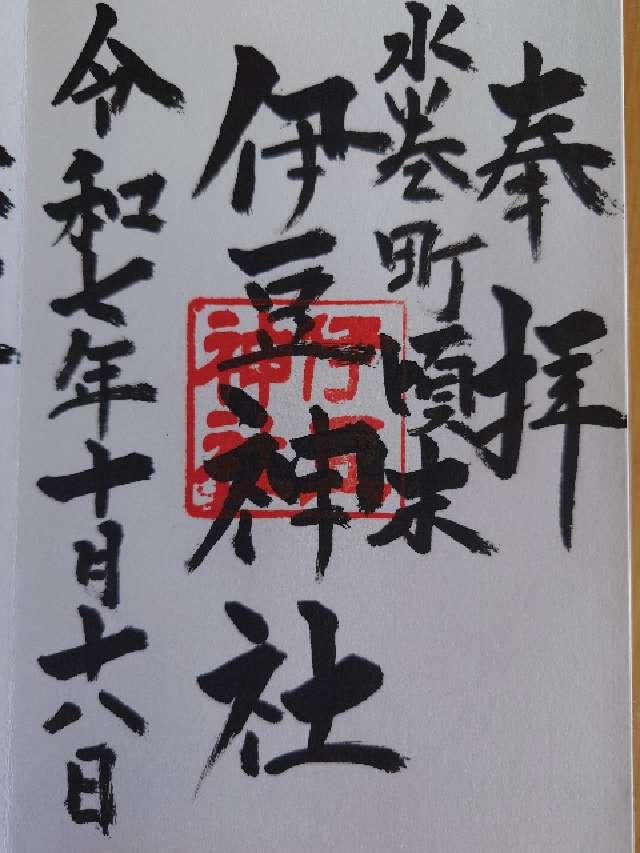 奉拝
水巻町頃末
伊豆神社
令和七年十月十八日